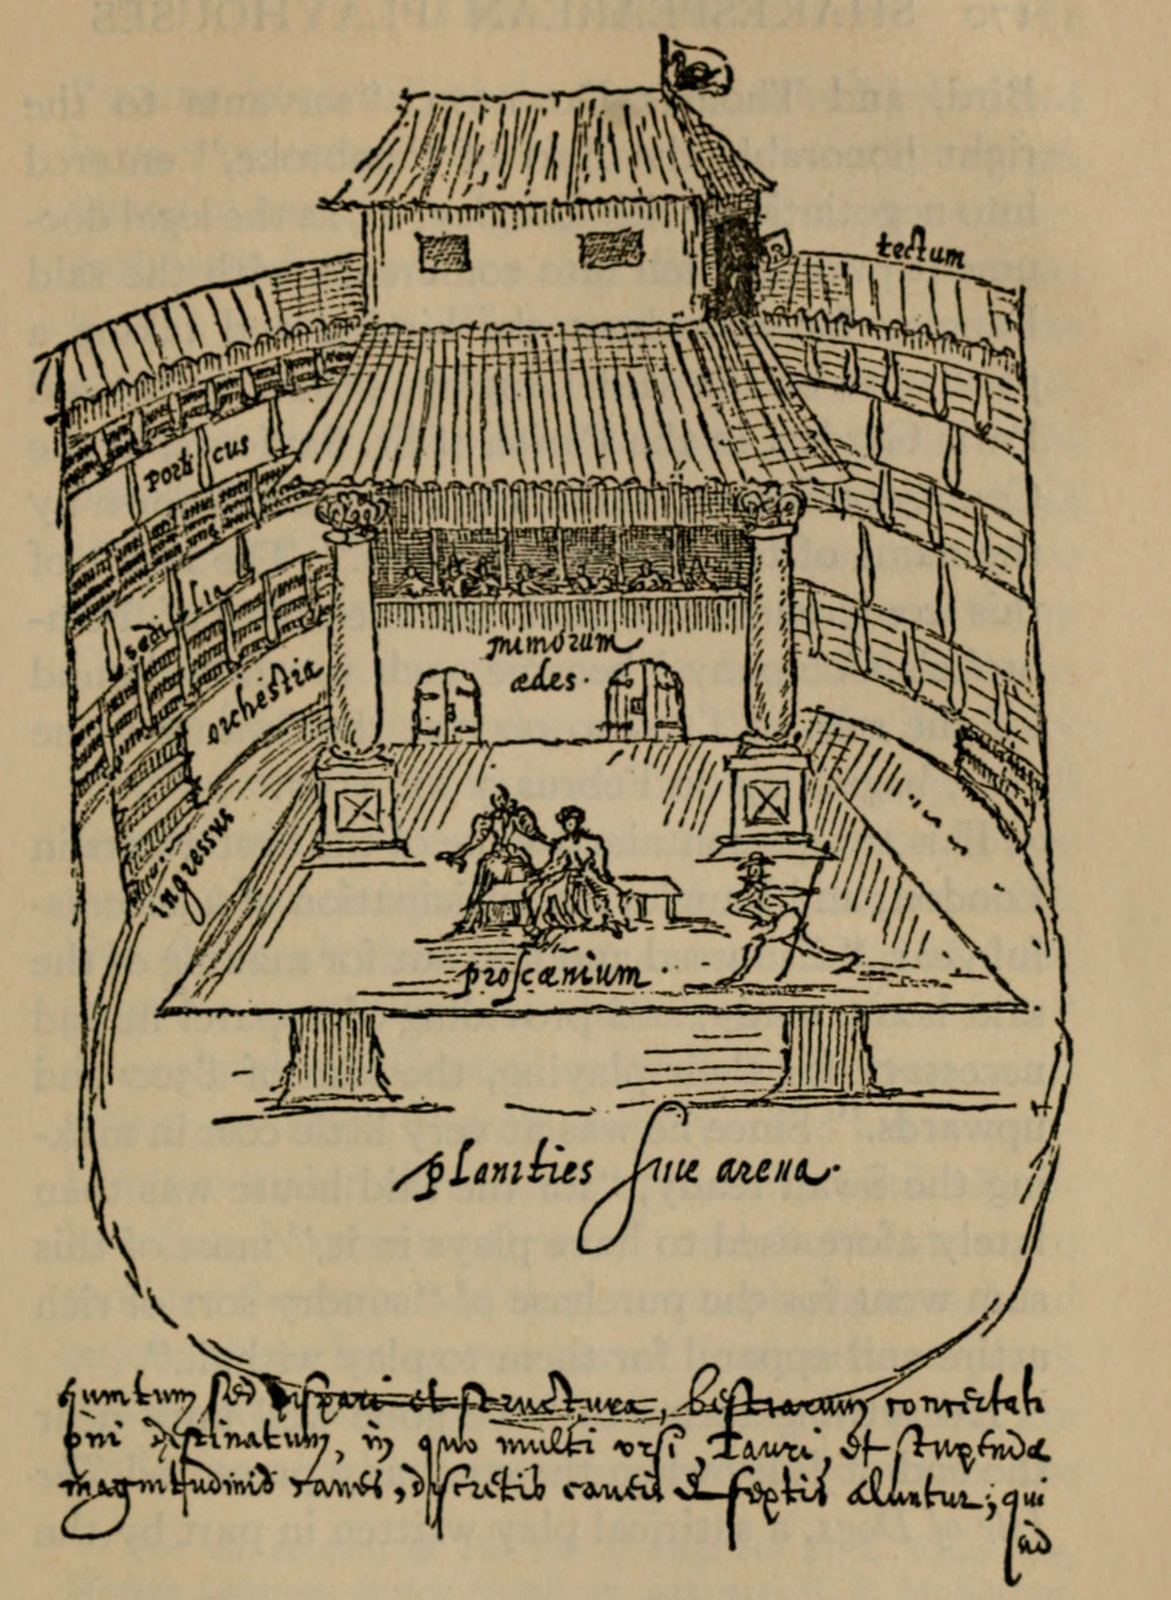 tectum
porticus
sedilia
orchestra
mimorum
ædes.
ingressus
proscænium.
planities sive arena.
quintum sed dispari et structura, bestiarum concertati
oni destinatum, in quo multi ursi, Tauri, et stupendæ
magnitudinis canes, discretis caveis & septis aluntur; qui
ad